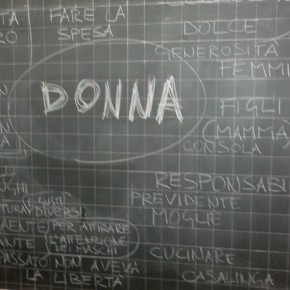 TÀ
FARE LA
SPESA
DOLCE
RÒ
GENEROSITÀ
FEMMI
DONNA
FIGLI
(MAMMA)
CONSOLA
RESPONSABI
PREVIDENTE
MOGLIE
GUSTI
DIVERSI
PER ATTIRARE
L'ATTENZIONE
DEI MASCHI
ANTE
PASSATO NON AVEVA
LA LIBERTÀ
CUCINARE
CASALINGA